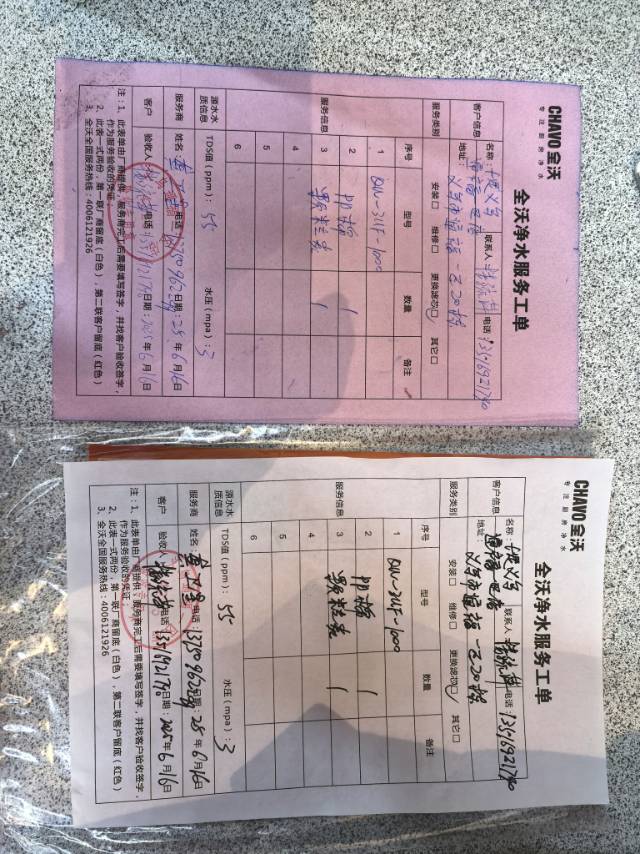 CHAVO全沃
专注厨房净水
全沃净水服务工单
客户信息 名称: 联系人: 电话: 13516921760
地址: 义乌市 一区20栋
服务类别 安装☐ 维修☐ 更换滤芯☑ 其它☐
服务信息 序号 型号 数量 备注
1 -3UF-1000
2 阻垢 1
3 颗粒炭 1
4
5
6
源水水质信息 TDS值(ppm): 55 水压(mpa): 3
服务商 姓名: 电话: 日期: 25年6月16日
客户 验收人: 电话: 日期: 2025年6月16日
注:1、此表单由厂商提供,服务商完工后需要填写签字,并找客户验收签字,
作为服务验收的凭证。
2、此表一式两份,第一联厂商留底(白色),第二联客户留底(红色)
3、全沃全国服务热线:4006121926
CHAVO全沃
专注厨房净水
全沃净水服务工单
客户信息 名称: 联系人: 电话: 13516921760
地址: 义乌市 一区20栋
服务类别 安装☐ 维修☐ 更换滤芯☑ 其它☐
服务信息 序号 型号 数量 备注
1 -3UF-1000
2 阻垢 1
3 颗粒炭 1
4
5
6
源水水质信息 TDS值(ppm): 55 水压(mpa): 3
服务商 姓名: 电话: 日期: 25年6月16日
客户 验收人: 电话: 13516921760 日期: 2025年6月16日
注:1、此表单由厂商提供,服务商完工后需要填写签字,并找客户验收签字,
作为服务验收的凭证。
2、此表一式两份,第一联厂商留底(白色),第二联客户留底(红色)
3、全沃全国服务热线:4006121926